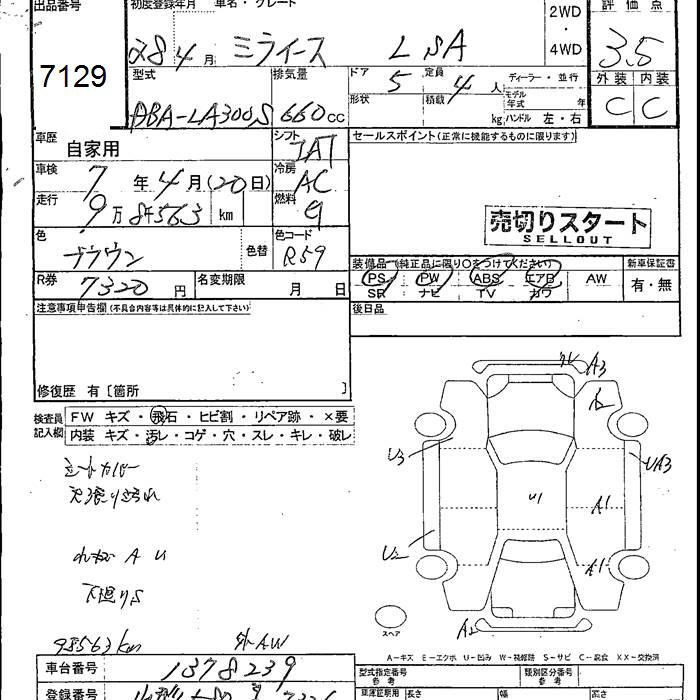 出品番号 初度登録年月 車名・グレード 2WD 評価点
7129 28 4 月 ミライース L SA ・ 4WD 3.5
型式 排気量 ドア 5 定員 4 人 ディーラー・並行 外装 内装
ABA-LA300S 660 cc 形状 積載 kg モデル年式 年 ハンドル 左・右 C C
車歴 自家用 シフト IAT セールスポイント(正常に機能するものに限ります)
車検 7 年 4 月 (20 日) 冷房 AC
走行 9 万 8563 km 燃料 売切りスタート
SELLOUT
色 ブラウン 色替 色コード R59
装備品(純正品に限り〇をつけてください) 新車保証書
R券 7320 円 名変期限 月 日 PS PW ABS エアB AW 有・無
SR ナビ TV カワ
注意事項申告欄(不具合内容等は具体的に記入して下さい) 後日品
修復歴 有 [箇所 ]
検査員記入欄 FW キズ・飛石・ヒビ割・リペア跡・×要
内装 キズ・汚レ・コゲ・穴・スレ・キレ・破レ
A3
U3 UA3
シートカバー
天張り汚れ
U1 A1
A U
U2 A1
下廻りS
98563km 外AW A2
スペア
A-キズ E-エクボ U-凹み W-補修跡 S-サビ C-腐食 XX-交換済
車台番号 1378239 型式指定番号 参考 類別区分番号 参考
登録番号 長さ 幅 高さ